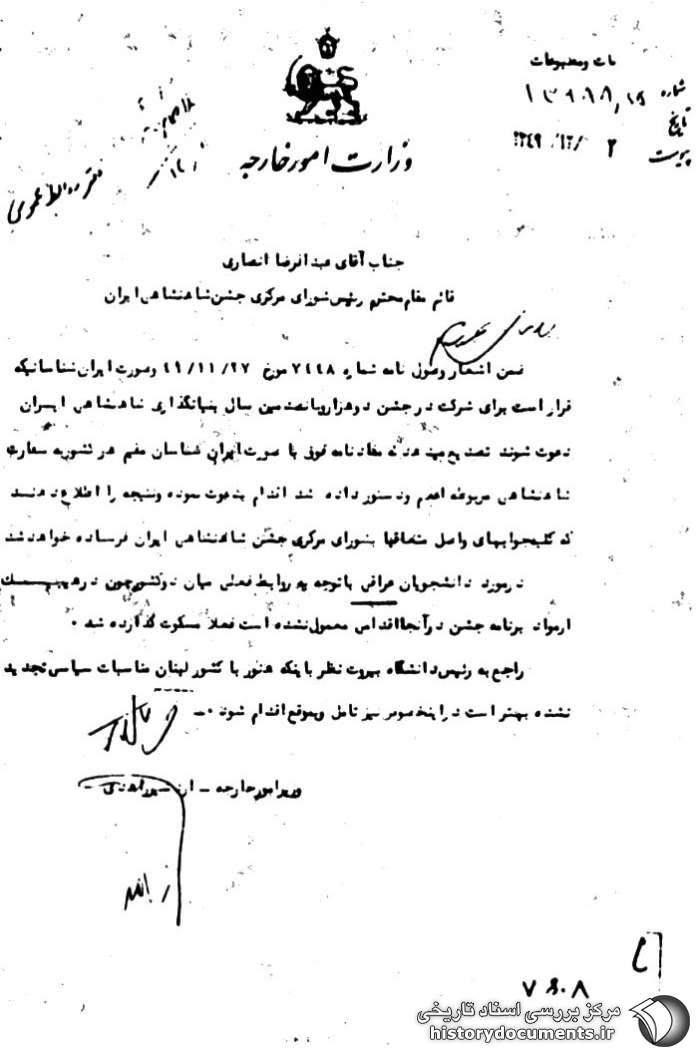 شماره ۱۳۹۸۸/۱۵
تاریخ ۲ /۱۲/ ۱۳۴۹
پیوست
وزارت امور خارجه
دفتر روابط عمومی
جناب آقای عبدالرضا انصاری
قائم مقام محترم رئیس شورای مرکزی جشن شاهنشاهی ایران
ضمن اشعار وصول نامه شماره ۷۴۴۸ مورخ ۴۹/۱۱/۲۷ وصورت ایران شناسانیکه
قرار است برای شرکت در جشن دوهزاروپانصدمین سال بنیانگذاری شاهنشاهی ایران
دعوت شوند تصدیع میدهد که مفاد نامه فوق با صورت ایران شناسان مقیم هر کشور به سفارت
شاهنشاهی مربوطه اعلام ودستور داده شد اقدام بدعوت نموده ونتیجه را اطلاع دهند
که کلیه جوابهای واصل متعاقبا بشورای مرکزی جشن شاهنشاهی ایران فرستاده خواهد شد
درمورد دانشجویان عراقی باتوجه به روابط فعلی میان دوکشور چون در هیچیک
ازمواد برنامه جشن در آنجا اقدامی معمول نشده است فعلا مسکوت گذارده شد .
راجع به رئیس دانشگاه بیروت نظر باینکه هنوز با کشور لبنان مناسبات سیاسی تجدید
نشده بهتر است در اینخصوص نیز تامل وبموقع اقدام شود .ـ
وزیر امور خارجه ـ اردشیر زاهدی ـ
۷۶۰۸
مرکز بررسی اسناد تاریخی
historydocuments.ir